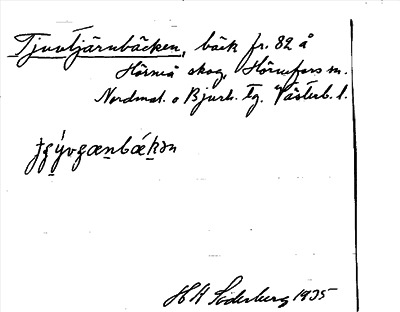 Tjuvtjärnbäcken, bäck fr. 82 å
Hörneå skog, Hörnefors sn.
Nordmal. o Bjurh. tg. Västerb. l.
H A Söderberg 1935